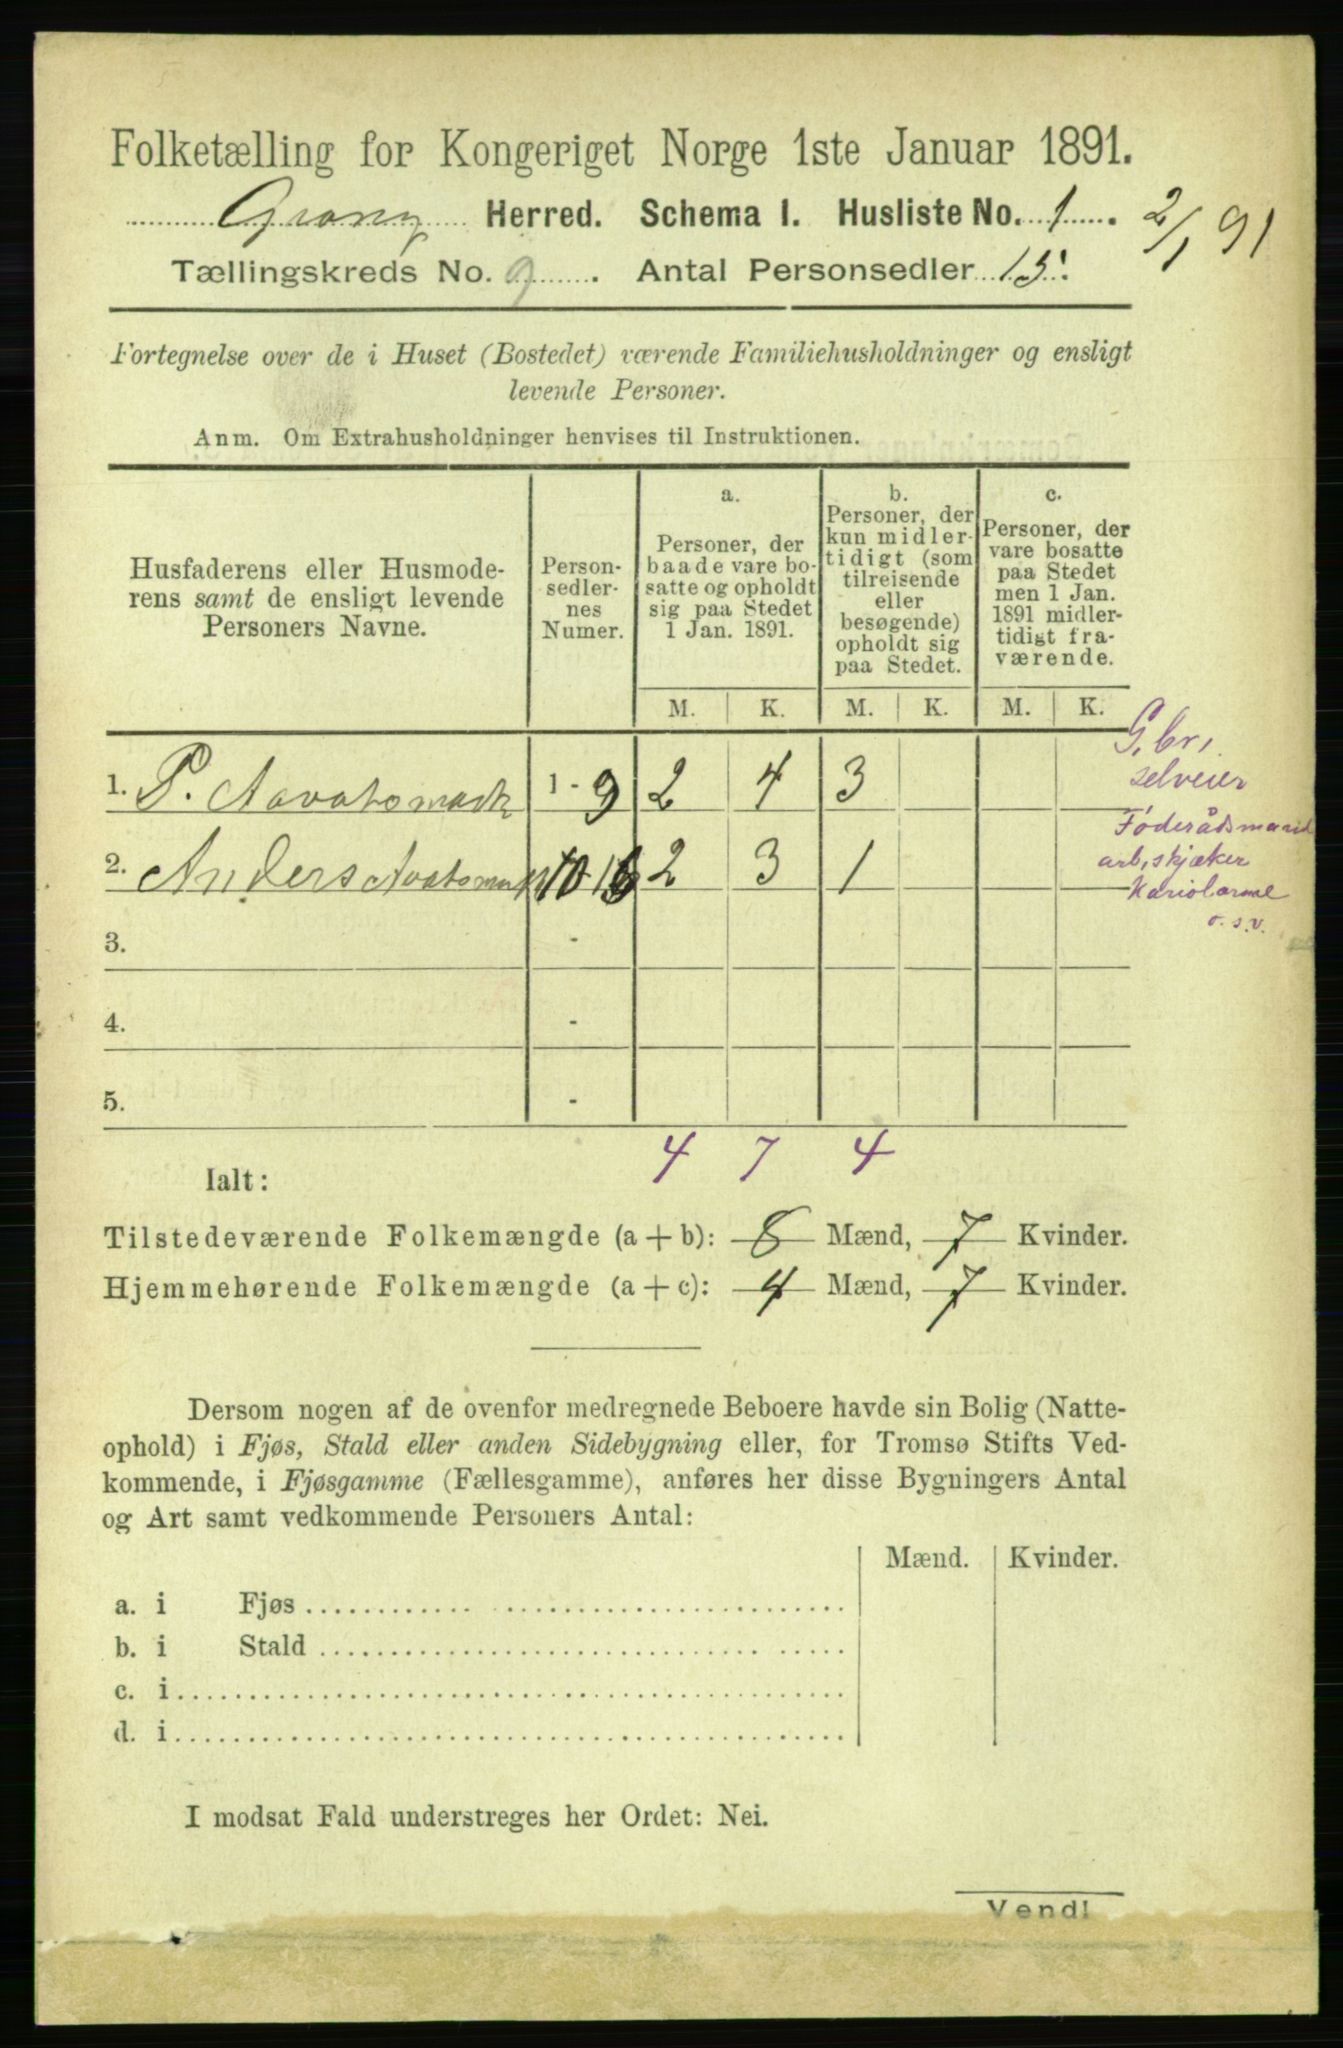 Folketælling for Kongeriget Norge 1ste Januar 1891.
Grong Herred. Schema I. Husliste No. 1. 2/1 91
Tællingskreds No. 9. Antal Personsedler 15.
Fortegnelse over de i Huset (Bostedet) værende Familiehusholdninger og ensligt
levende Personer.
Anm. Om Extrahusholdninger henvises til Instruktionen.
Husfaderens eller Husmode-
rens samt de ensligt levende
Personers Navne.
Person-
sedler-
nes
Numer.
a.
Personer, der
baade vare bo-
satte og opholdt
sig paa Stedet
1 Jan. 1891.
b.
Personer, der
kun midler-
tidigt (som
tilreisende
eller
besøgende)
opholdt sig
paa Stedet.
c.
Personer, der
vare bosatte
paa Stedet
men 1 Jan.
1891 midler-
tidigt fra-
værende.
M. K. M. K. M. K.
1. P. Aavatsmark 1 - 9 2 4 3
G.br.
selveier
Føderådsmand
2. Anders 10 - 2 3 1
arb, skjæker
o.s.v.
3. -
4. -
5. -
4 7 4
Ialt:
Tilstedeværende Folkemængde (a + b): 8 Mænd, 7 Kvinder.
Hjemmehørende Folkemængde (a + c): 4 Mænd, 7 Kvinder.
Dersom nogen af de ovenfor medregnede Beboere havde sin Bolig (Natte-
ophold) i Fjøs, Stald eller anden Sidebygning eller, for Tromsø Stifts Ved-
kommende, i Fjøsgamme (Fællesgamme), anføres her disse Bygningers Antal
og Art samt vedkommende Personers Antal:
Mænd. Kvinder.
a. i Fjøs
b. i Stald
c. i
d. i
I modsat Fald understreges her Ordet: Nei.
Vend!